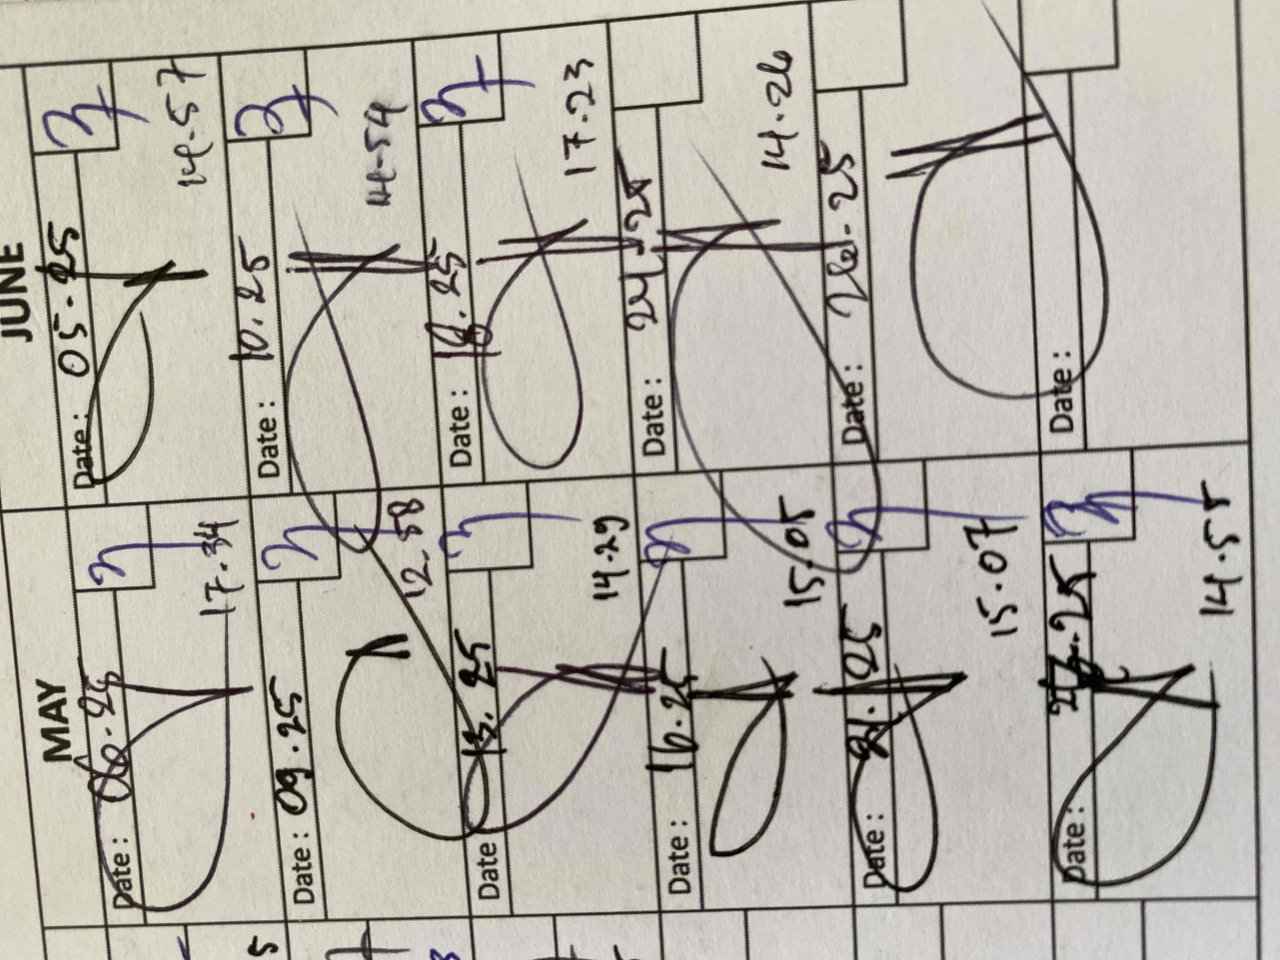 MAY
Date: 06.25
17.34
Date: 09.25
12.58
Date: 13.25
14.29
Date: 16.25
15.05
Date: 21.25
15.07
Date: 25
14.55
JUNE
Date: 05.25
14.57
Date: 10.25
14-54
Date: 25
17.23
Date: 24.25
14.26
Date: 26.25
Date: